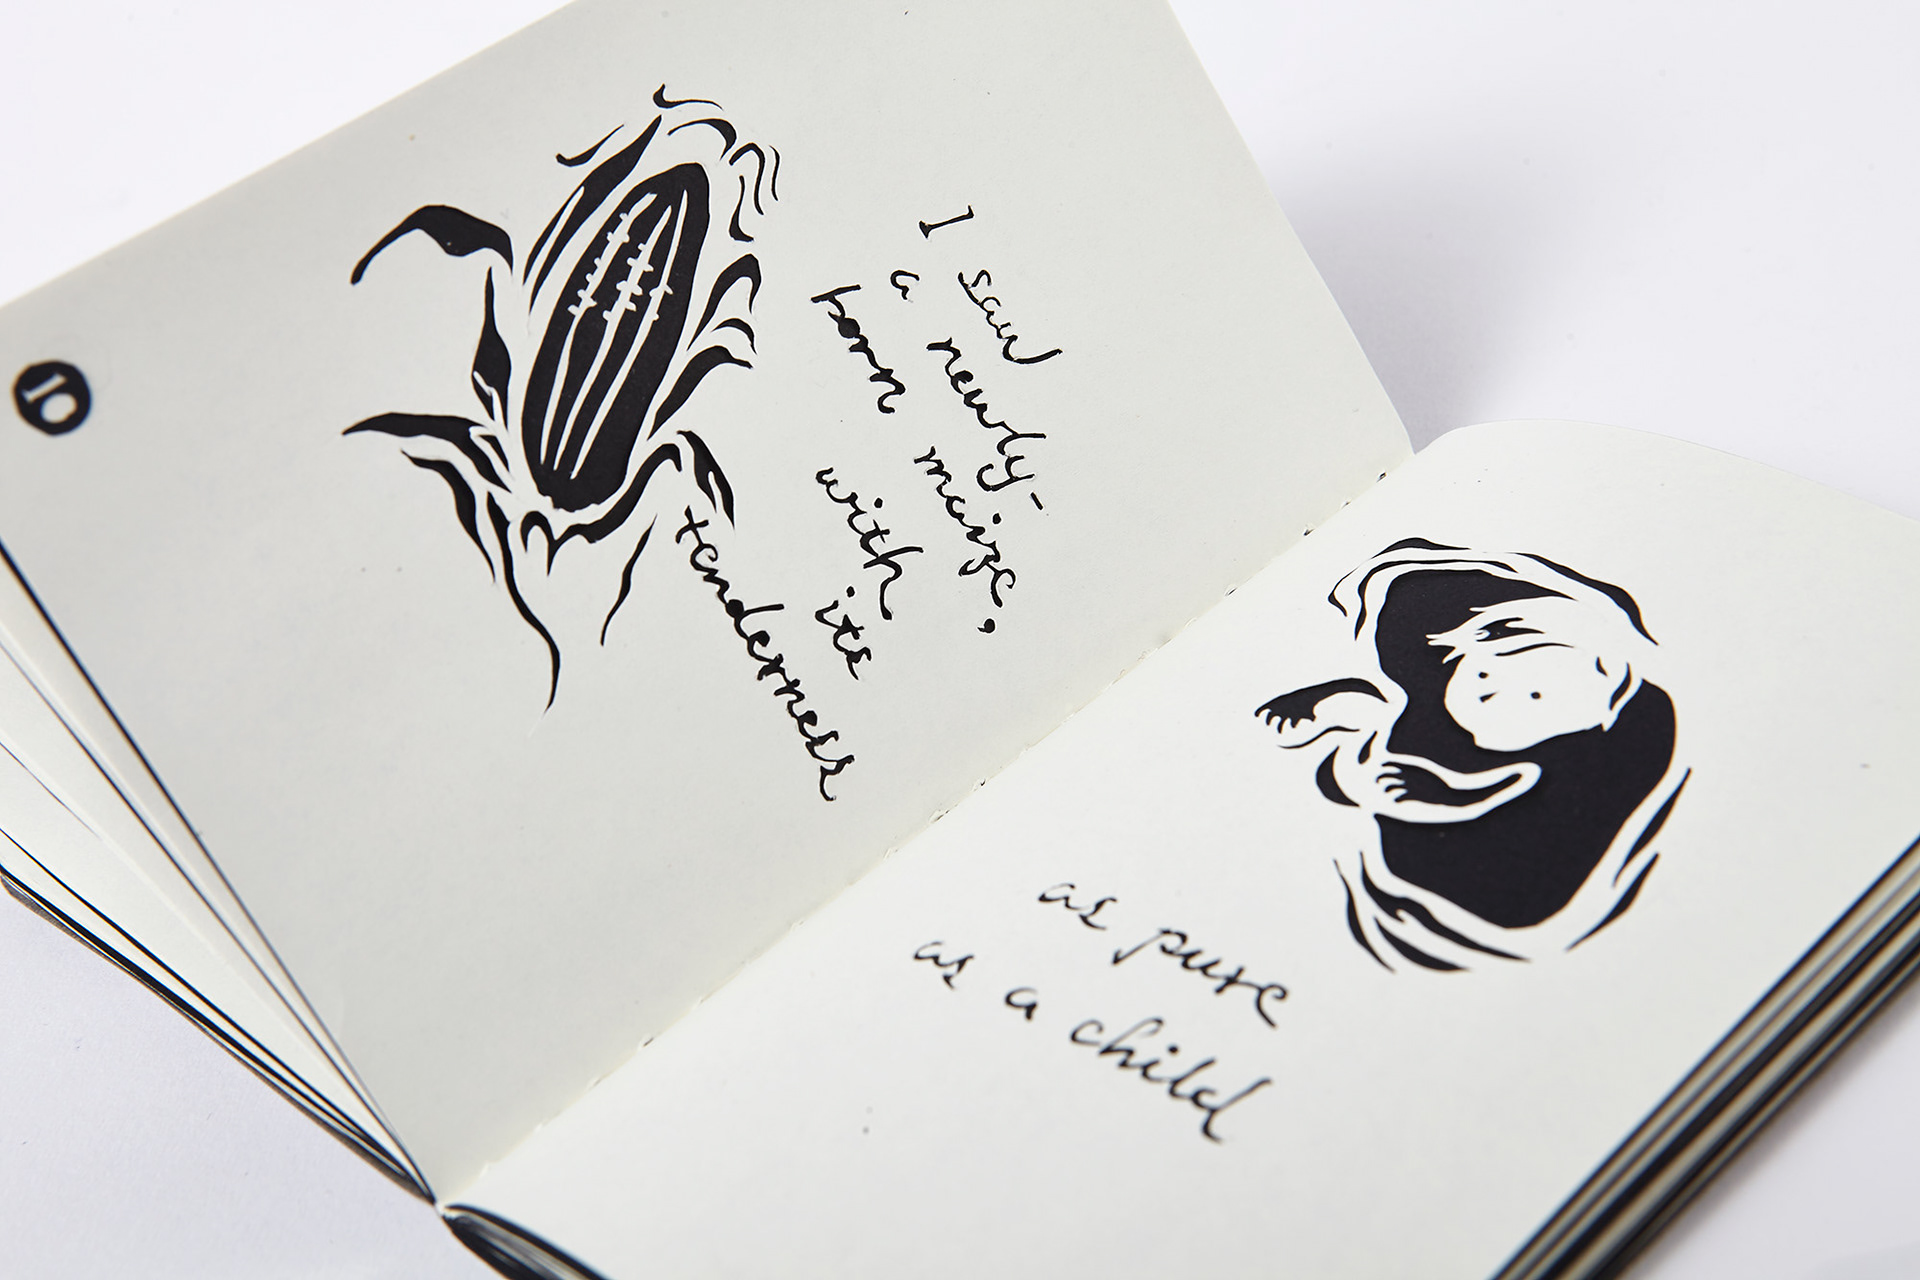 10
I saw
a newly-
born maize,
with its
tenderness
as pure
as a child